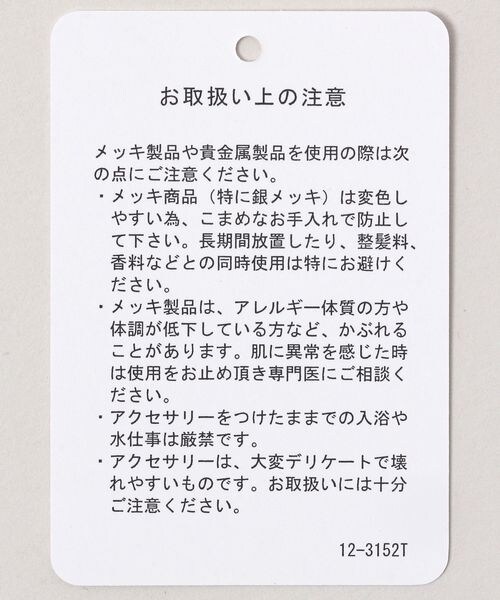 お取扱い上の注意
メッキ製品や貴金属製品を使用の際は次
の点にご注意ください。
・メッキ商品（特に銀メッキ）は変色し
やすい為、こまめなお手入れで防止し
て下さい。長期間放置したり、整髪料、
香料などとの同時使用は特にお避けく
ださい。
・メッキ製品は、アレルギー体質の方や
体調が低下している方など、かぶれる
ことがあります。肌に異常を感じた時
は使用をお止め頂き専門医にご相談く
ださい。
・アクセサリーをつけたままでの入浴や
水仕事は厳禁です。
・アクセサリーは、大変デリケートで壊
れやすいものです。お取扱いには十分
ご注意ください。
12-3152T